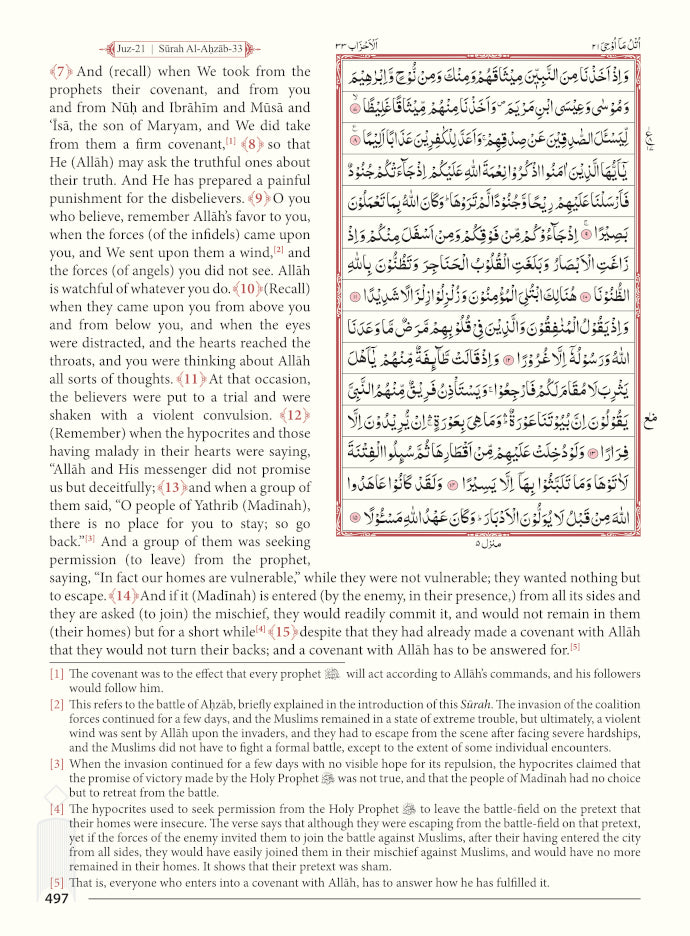 Juz-21 | Sūrah Al-Aḥzāb-33
اَلْاَحْزَاب ٣٣
اُتْلُ مَاۤ اُوْحِیَ ٢١
﴾7﴿ And (recall) when We took from the
prophets their covenant, and from you
and from Nūḥ and Ibrāhīm and Mūsā and
‘Īsā, the son of Maryam, and We did take
from them a firm covenant,[1] ﴾8﴿ so that
He (Allāh) may ask the truthful ones about
their truth. And He has prepared a painful
punishment for the disbelievers. ﴾9﴿ O you
who believe, remember Allāh’s favor to you,
when the forces (of the infidels) came upon
you, and We sent upon them a wind,[2] and
the forces (of angels) you did not see. Allāh
is watchful of whatever you do. ﴾10﴿ (Recall)
when they came upon you from above you
and from below you, and when the eyes
were distracted, and the hearts reached the
throats, and you were thinking about Allāh
all sorts of thoughts. ﴾11﴿ At that occasion,
the believers were put to a trial and were
shaken with a violent convulsion. ﴾12﴿
(Remember) when the hypocrites and those
having malady in their hearts were saying,
“Allāh and His messenger did not promise
us but deceitfully; ﴾13﴿ and when a group of
them said, “O people of Yathrib (Madīnah),
there is no place for you to stay; so go
back.”[3] And a group of them was seeking
permission (to leave) from the prophet,
وَاِذْ اَخَذْنَا مِنَ النَّبِیّٖنَ مِیْثَاقَهُمْ وَمِنْكَ وَمِنْ نُّوْحٍ وَّاِبْرٰهِیْمَ
وَمُوْسٰی وَعِیْسَی ابْنِ مَرْیَمَ ۪ وَاَخَذْنَا مِنْهُمْ مِّیْثَاقًا غَلِیْظًا ۙ ﴿۷﴾
لِّیَسْـَٔلَ الصّٰدِقِیْنَ عَنْ صِدْقِهِمْ ۚ وَاَعَدَّ لِلْكٰفِرِیْنَ عَذَابًا اَلِیْمًا ﴿۸﴾
یٰۤاَیُّهَا الَّذِیْنَ اٰمَنُوا اذْكُرُوْا نِعْمَةَ اللهِ عَلَیْكُمْ اِذْ جَآءَتْكُمْ جُنُوْدٌ
فَاَرْسَلْنَا عَلَیْهِمْ رِیْحًا وَّجُنُوْدًا لَّمْ تَرَوْهَا ؕ وَكَانَ اللهُ بِمَا تَعْمَلُوْنَ
بَصِیْرًا ﴿۹﴾ اِذْ جَآءُوْكُمْ مِّنْ فَوْقِكُمْ وَمِنْ اَسْفَلَ مِنْكُمْ وَاِذْ
زَاغَتِ الْاَبْصَارُ وَبَلَغَتِ الْقُلُوْبُ الْحَنَاجِرَ وَتَظُنُّوْنَ بِاللهِ
الظُّنُوْنَا ﴿۱۰﴾ هُنَالِكَ ابْتُلِیَ الْمُؤْمِنُوْنَ وَزُلْزِلُوْا زِلْزَالًا شَدِیْدًا ﴿۱۱﴾
وَاِذْ یَقُوْلُ الْمُنٰفِقُوْنَ وَالَّذِیْنَ فِیْ قُلُوْبِهِمْ مَّرَضٌ مَّا وَعَدَنَا
اللهُ وَرَسُوْلُهٗۤ اِلَّا غُرُوْرًا ﴿۱۲﴾ وَاِذْ قَالَتْ طَّآىِٕفَةٌ مِّنْهُمْ یٰۤاَهْلَ
یَثْرِبَ لَا مُقَامَ لَكُمْ فَارْجِعُوْا ۚ وَیَسْتَاْذِنُ فَرِیْقٌ مِّنْهُمُ النَّبِیَّ
یَقُوْلُوْنَ اِنَّ بُیُوْتَنَا عَوْرَةٌ ۛؕ وَمَا هِیَ بِعَوْرَةٍ ۛۚ اِنْ یُّرِیْدُوْنَ اِلَّا
فِرَارًا ﴿۱۳﴾ وَلَوْ دُخِلَتْ عَلَیْهِمْ مِّنْ اَقْطَارِهَا ثُمَّ سُىِٕلُوا الْفِتْنَةَ
لَاٰتَوْهَا وَمَا تَلَبَّثُوْا بِهَاۤ اِلَّا یَسِیْرًا ﴿۱۴﴾ وَلَقَدْ كَانُوْا عَاهَدُوا
اللهَ مِنْ قَبْلُ لَا یُوَلُّوْنَ الْاَدْبَارَ ؕ وَكَانَ عَهْدُ اللهِ مَسْـُٔوْلًا ﴿۱۵﴾
منزل ٥
saying, “In fact our homes are vulnerable,” while they were not vulnerable; they wanted nothing but
to escape. ﴾14﴿ And if it (Madīnah) is entered (by the enemy, in their presence,) from all its sides and
they are asked (to join) the mischief, they would readily commit it, and would not remain in them
(their homes) but for a short while[4] ﴾15﴿ despite that they had already made a covenant with Allāh
that they would not turn their backs; and a covenant with Allāh has to be answered for.[5]
[1] The covenant was to the effect that every prophet will act according to Allāh’s commands, and his followers
would follow him.
[2] This refers to the battle of Aḥzāb, briefly explained in the introduction of this Sūrah. The invasion of the coalition
forces continued for a few days, and the Muslims remained in a state of extreme trouble, but ultimately, a violent
wind was sent by Allāh upon the invaders, and they had to escape from the scene after facing severe hardships,
and the Muslims did not have to fight a formal battle, except to the extent of some individual encounters.
[3] When the invasion continued for a few days with no visible hope for its repulsion, the hypocrites claimed that
the promise of victory made by the Holy Prophet ﷺ was not true, and that the people of Madīnah had no choice
but to retreat from the battle.
[4] The hypocrites used to seek permission from the Holy Prophet ﷺ to leave the battle-field on the pretext that
their homes were insecure. The verse says that although they were escaping from the battle-field on that pretext,
yet if the forces of the enemy invited them to join the battle against Muslims, after their having entered the city
from all sides, they would have easily joined them in their mischief against Muslims, and would have no more
remained in their homes. It shows that their pretext was sham.
[5] That is, everyone who enters into a covenant with Allāh, has to answer how he has fulfilled it.
497